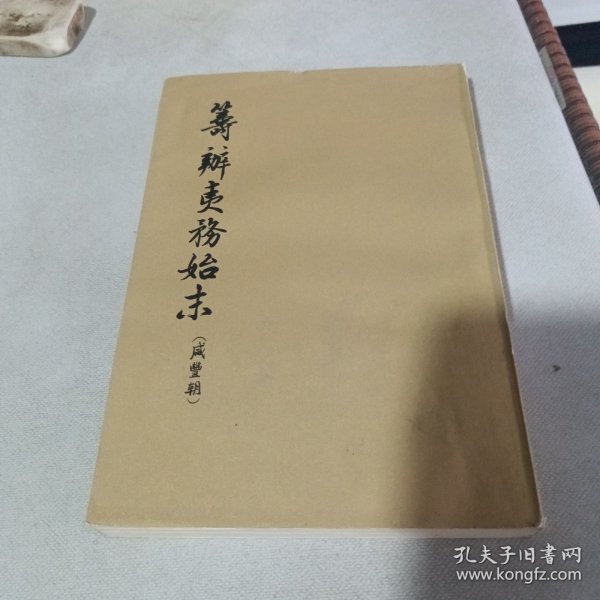 籌辦夷務始末
（咸豐朝）
孔夫子旧書网
www.kongfz.com